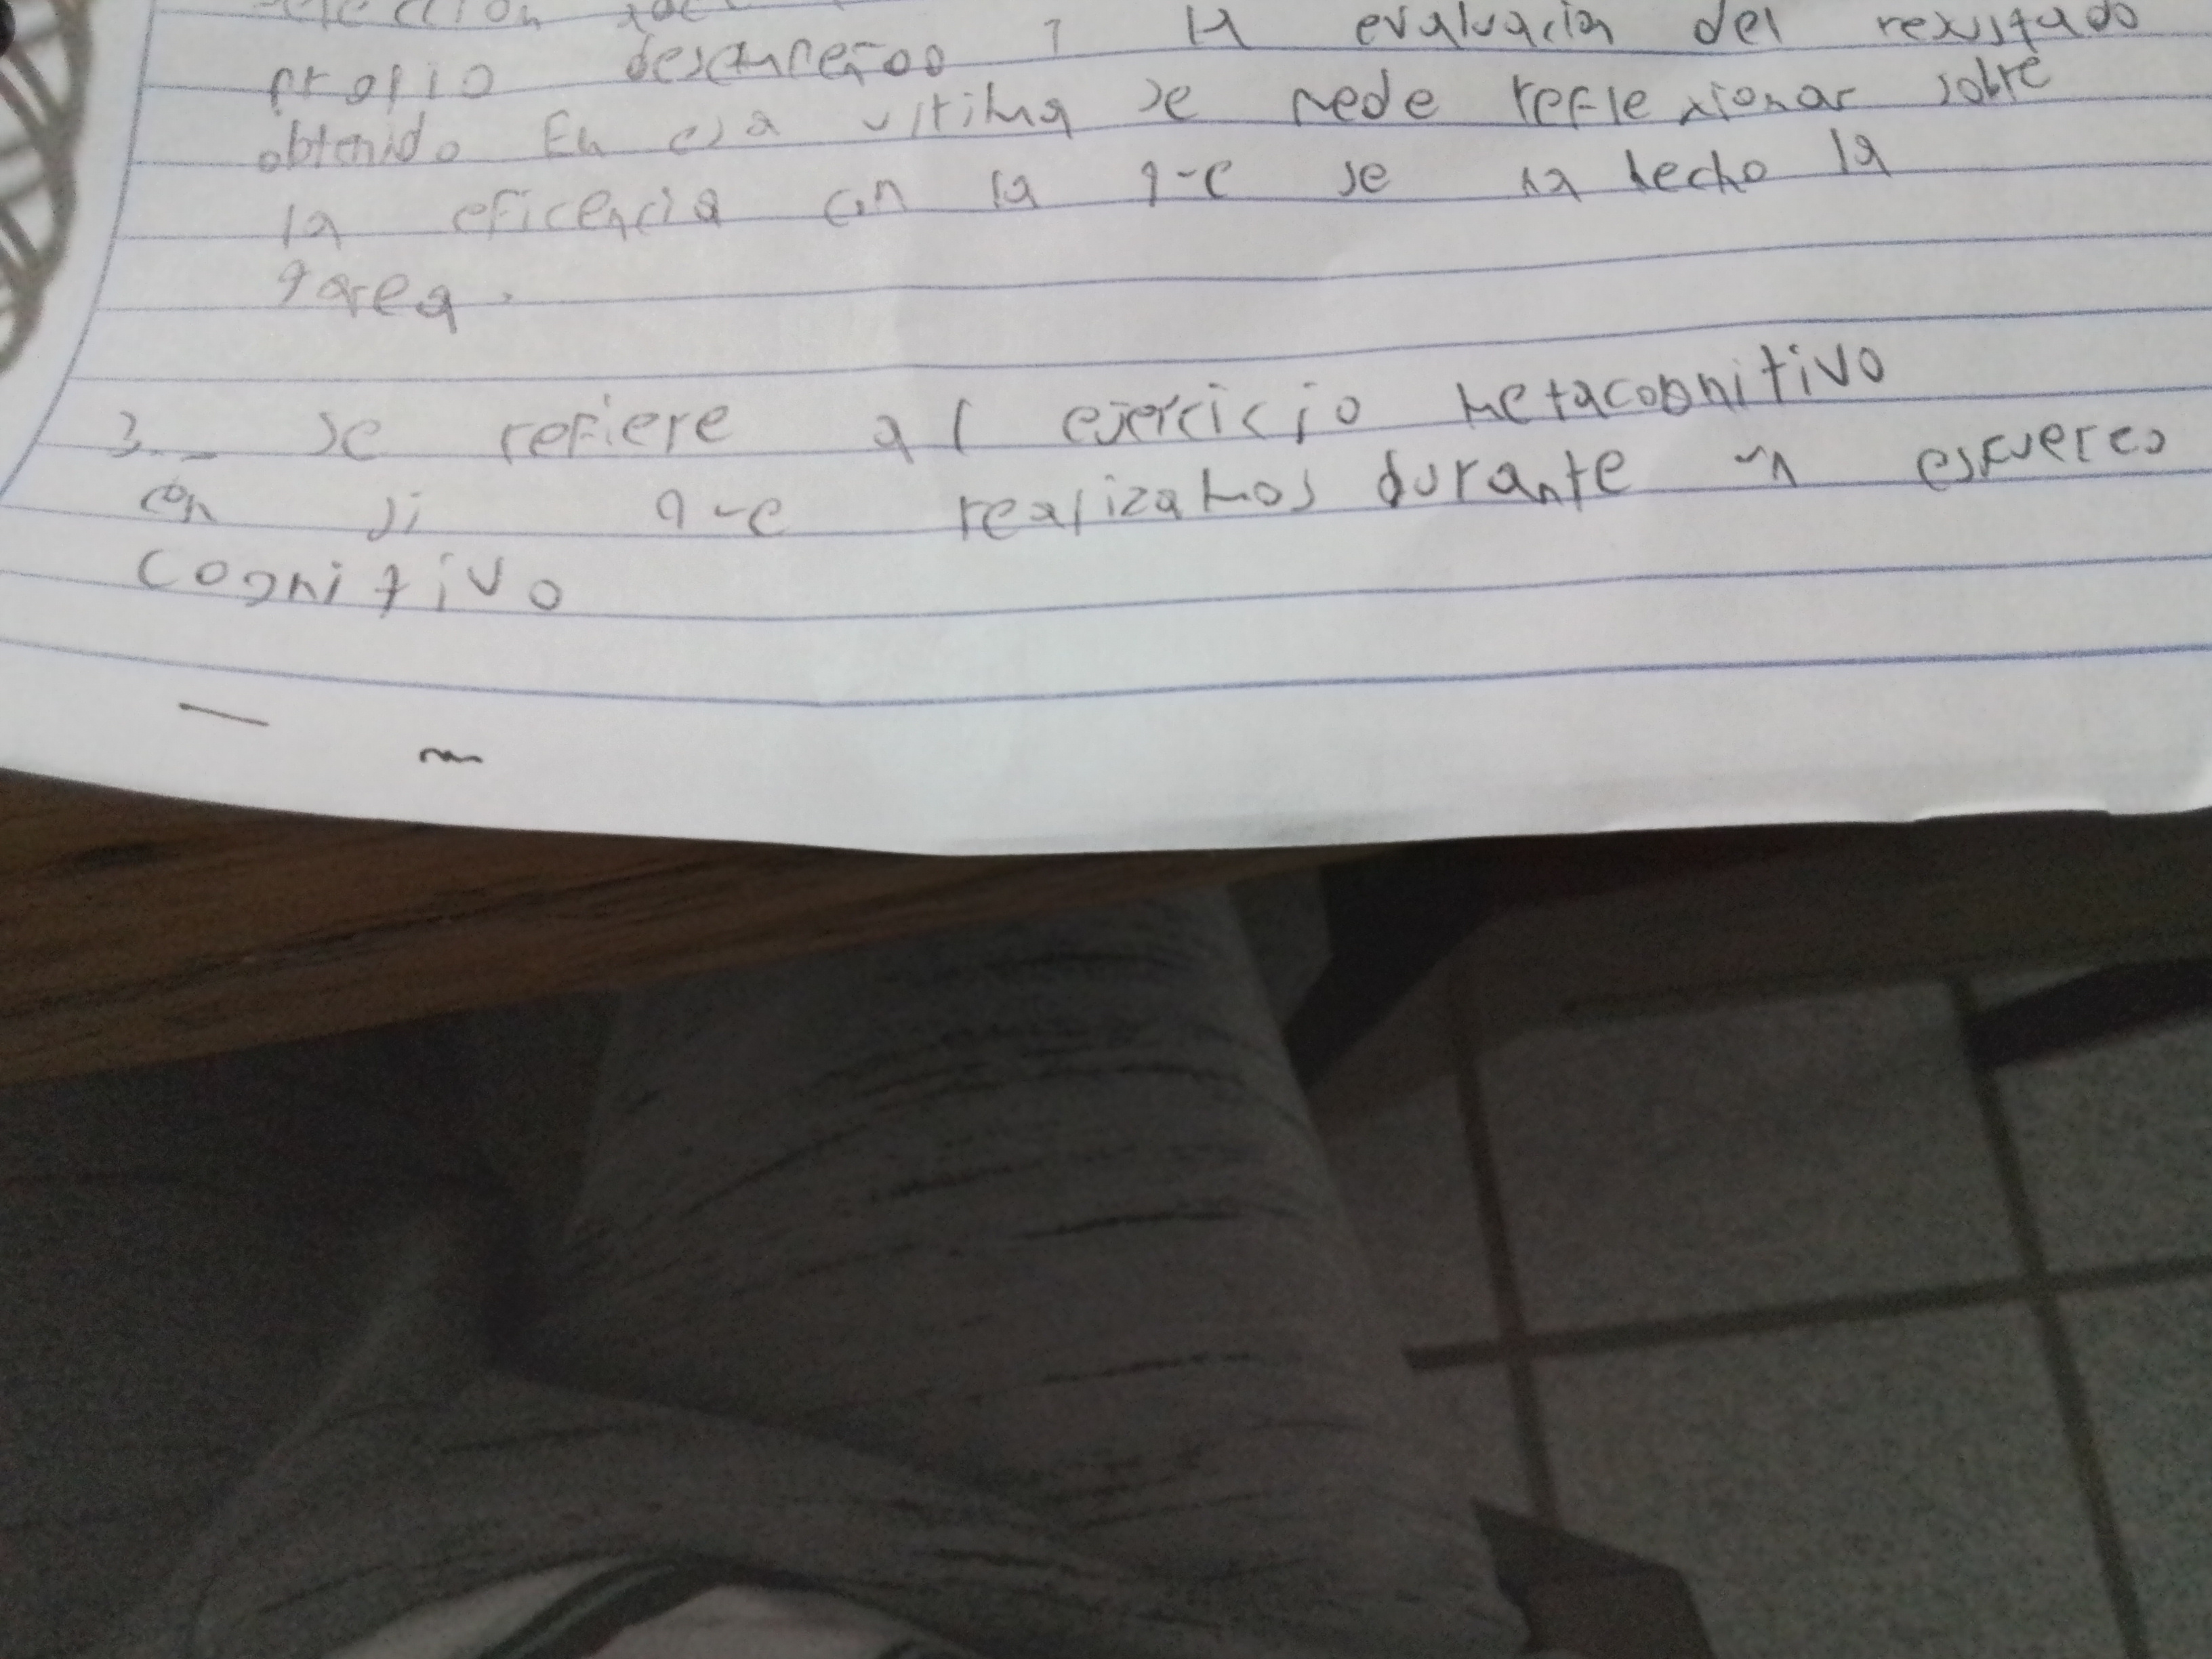 propio desempeñoo y la evaluación del resultado
obtenido En esa ultima se pede reflexionar sobre
la eficencia con la q-e se ha hecho la
tarea.
3.- se refiere al ejercicio metacognitivo
en si q-e realizamos durante un esfuerco
cognitivo